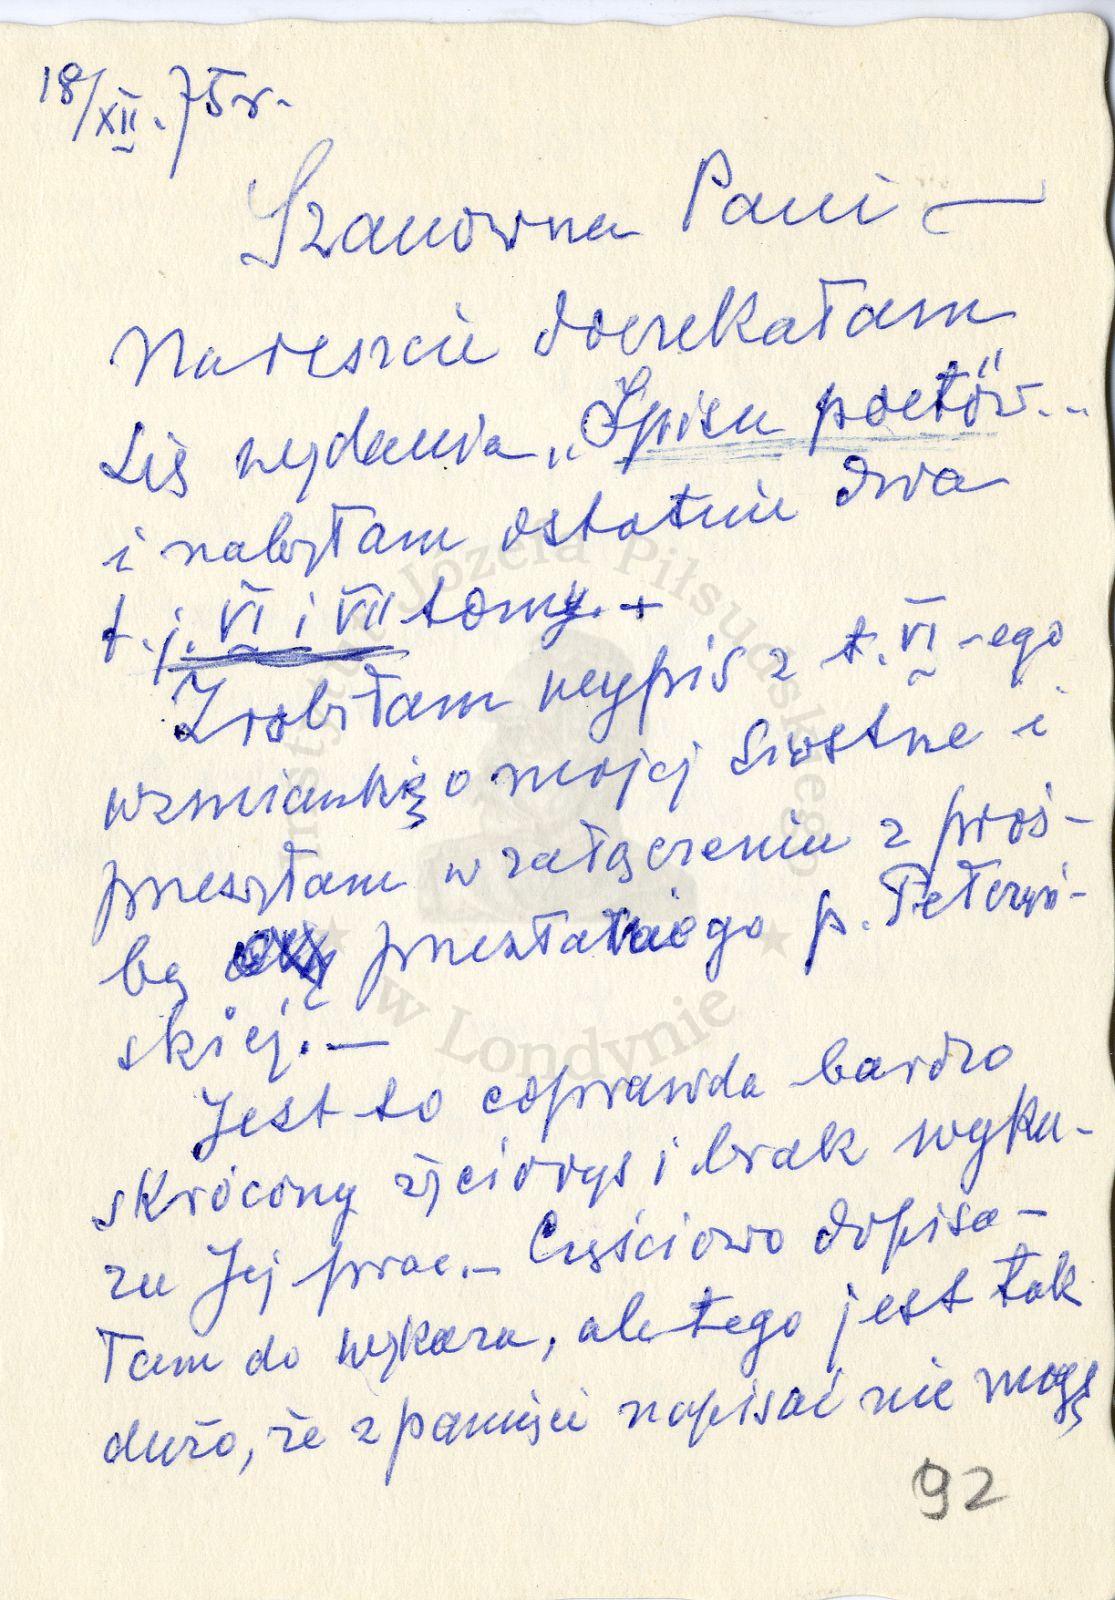 18/XII.75r.
Szanowna Pani —
Nareszcie doczekałam
się wydania „Spisu poetów"...
i nabyłam ostatnie dwa
t.j. VI i VII tomy. +
Zrobiłam wypis z t. VI-ego
wzmiankę o mojej Siostrze i
przesyłam w załączeniu z proś-
bą przesłania go p. Pełczyń-
skiej. —
Jest to coprawda bardzo
skrócony życiorys i brak wyka-
zu Jej prac. — Częściowo dopisa-
łam do wykazu, ale tego jest tak
dużo, że z pamięci napisać nie mogę
92
Instytut Józefa Piłsudskiego
w Londynie